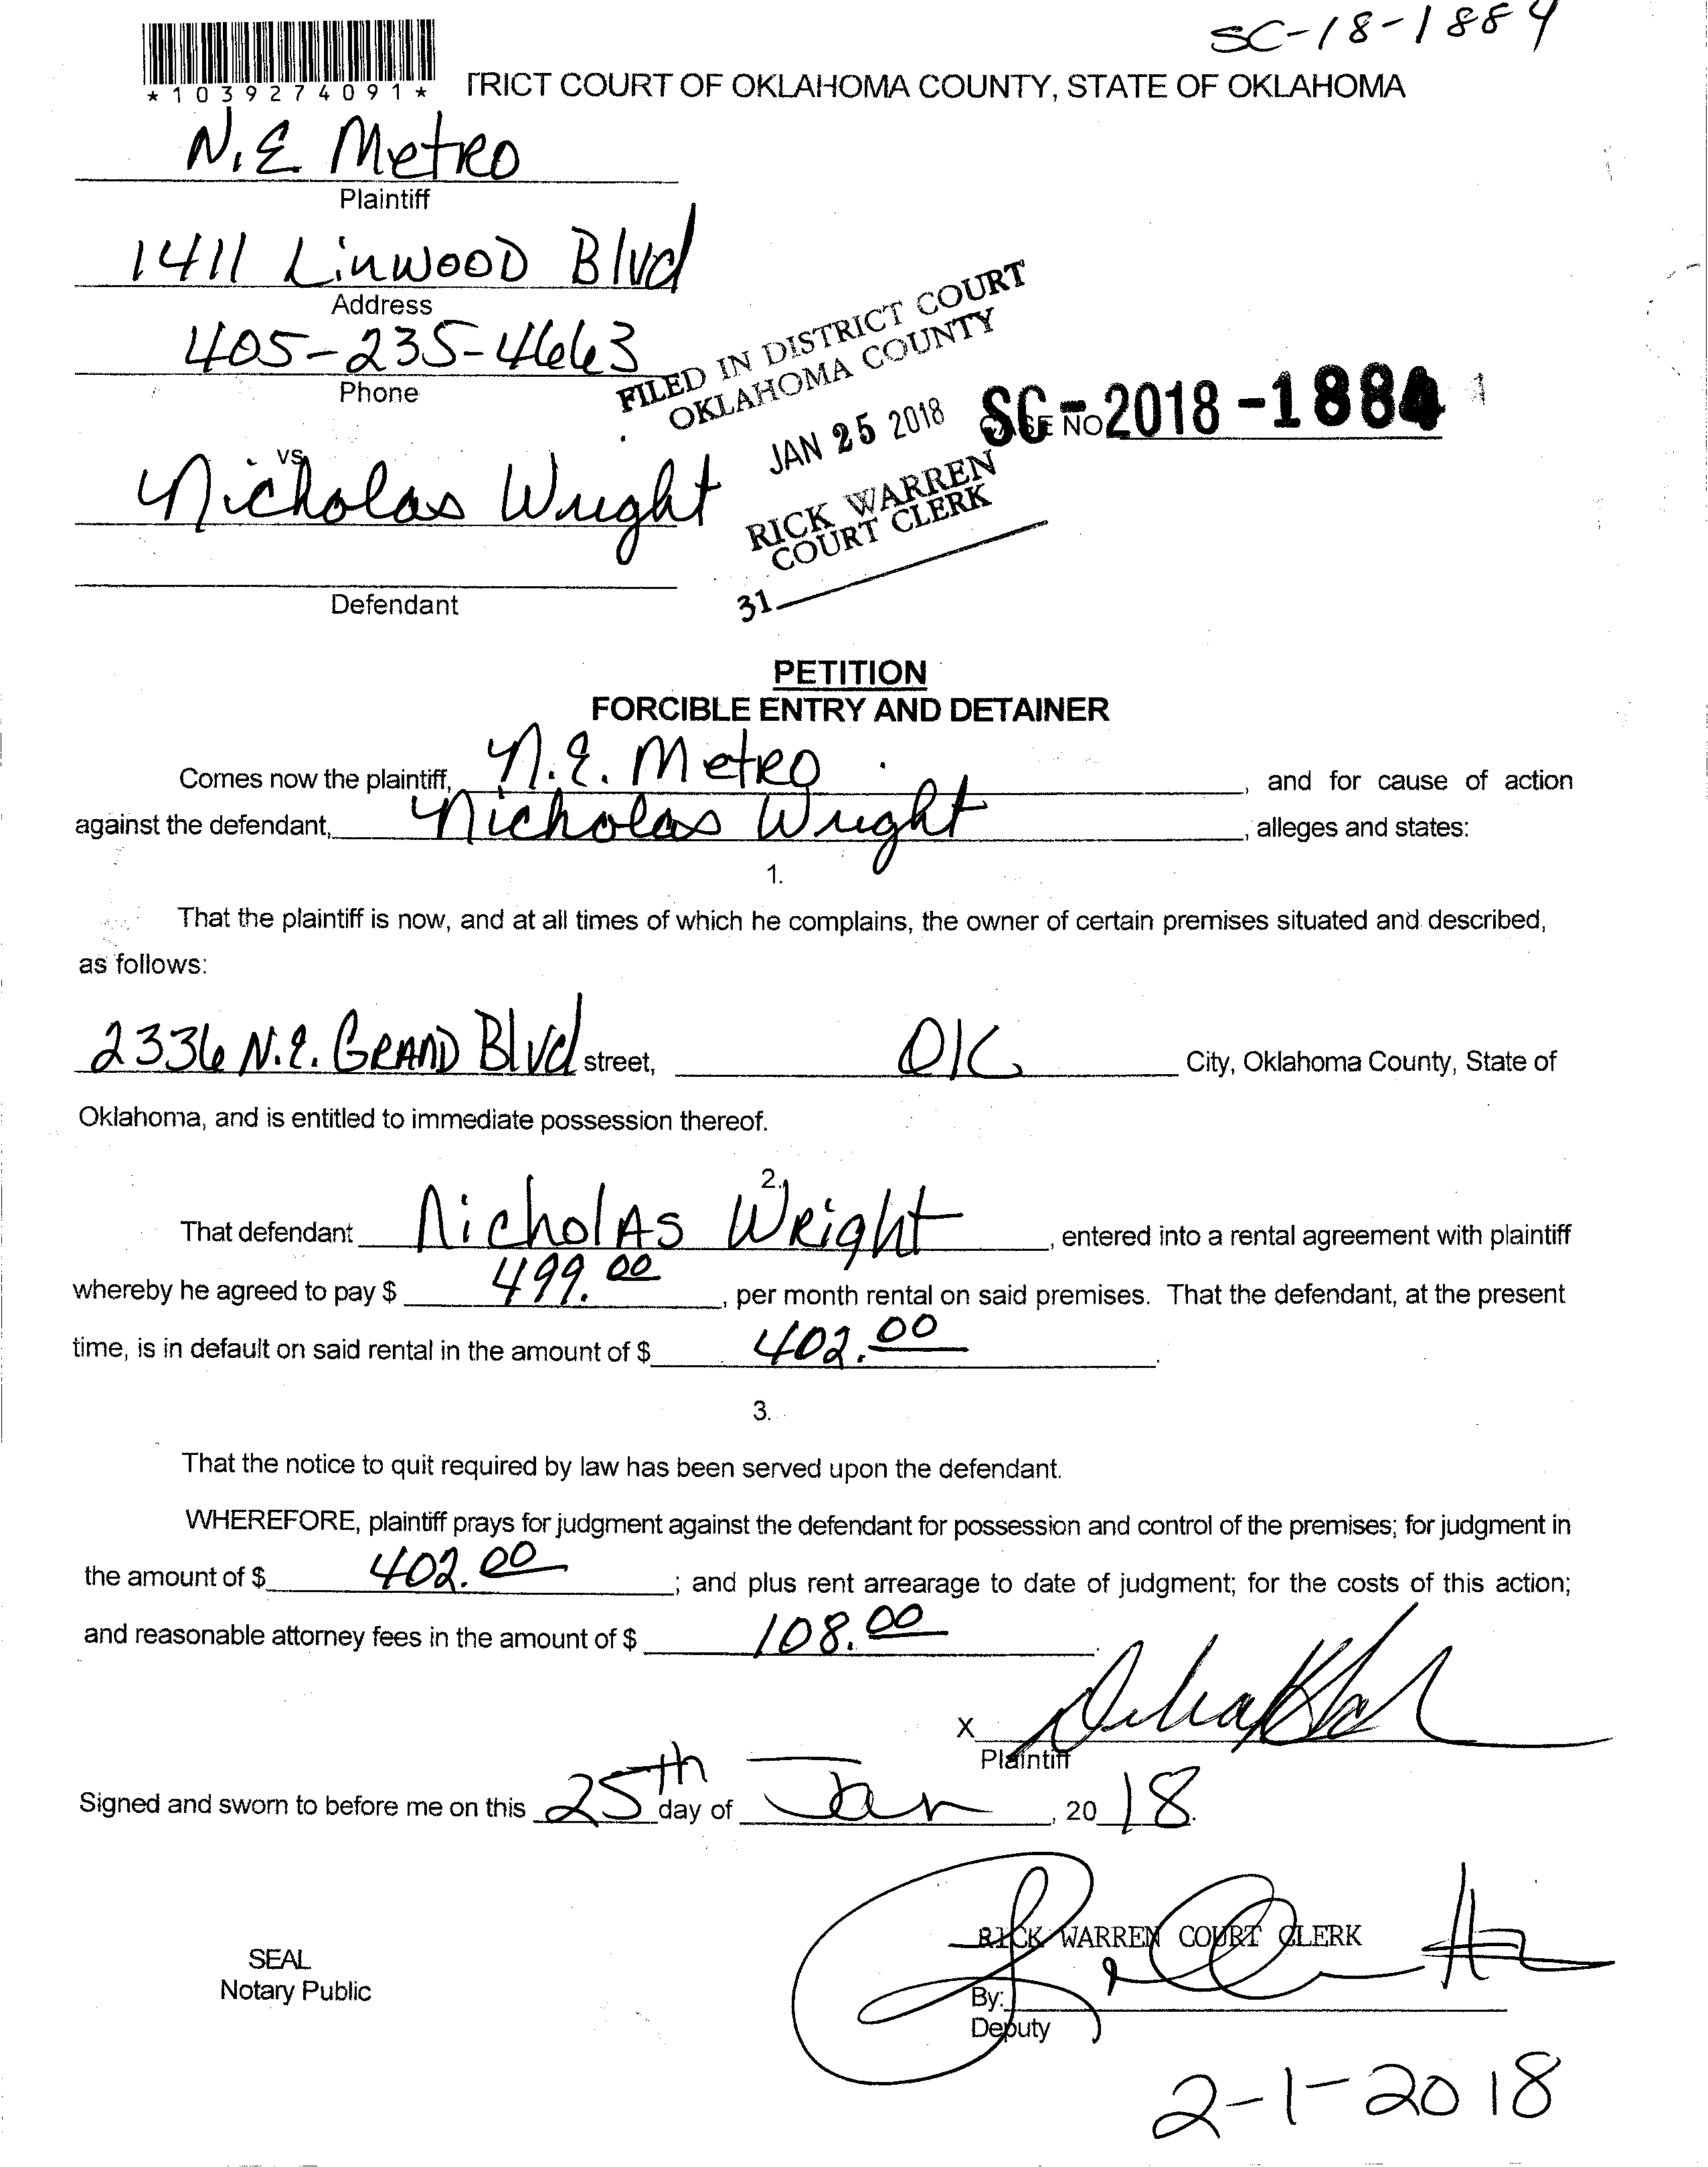 SC-18-1884
*1039274091*
TRICT COURT OF OKLAHOMA COUNTY, STATE OF OKLAHOMA
N.E Metro
Plaintiff
1411 Linwood Blvd
Address
405-235-4663
Phone
FILED IN DISTRICT COURT
OKLAHOMA COUNTY
JAN 25 2018
RICK WARREN
COURT CLERK
31
CASE NO
SC-2018-1884
vs
Nicholas Wright
Defendant
PETITION
FORCIBLE ENTRY AND DETAINER
Comes now the plaintiff, N.E. Metro, and for cause of action
against the defendant, Nicholas Wright, alleges and states:
1.
That the plaintiff is now, and at all times of which he complains, the owner of certain premises situated and described,
as follows:
2336 N.E. Grand Blvd street, OK City, Oklahoma County, State of
Oklahoma, and is entitled to immediate possession thereof.
2.
That defendant Nicholas Wright, entered into a rental agreement with plaintiff
whereby he agreed to pay $ 499.00, per month rental on said premises. That the defendant, at the present
time, is in default on said rental in the amount of $ 402.00.
3.
That the notice to quit required by law has been served upon the defendant.
WHEREFORE, plaintiff prays for judgment against the defendant for possession and control of the premises; for judgment in
the amount of $ 402.00; and plus rent arrearage to date of judgment; for the costs of this action;
and reasonable attorney fees in the amount of $ 108.00.
X
Plaintiff
Signed and sworn to before me on this 25th day of Jan, 2018.
RICK WARREN COURT CLERK
SEAL
Notary Public
By:
Deputy
2-1-2018